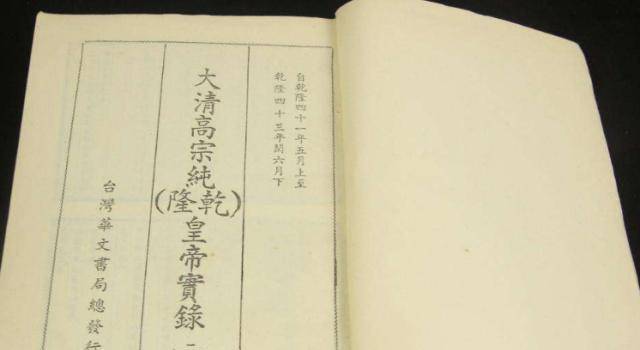 自乾隆四十一年五月上至
乾隆四十三年閏六月下
大清高宗純(乾隆)皇帝實錄
台灣華文書局總發行